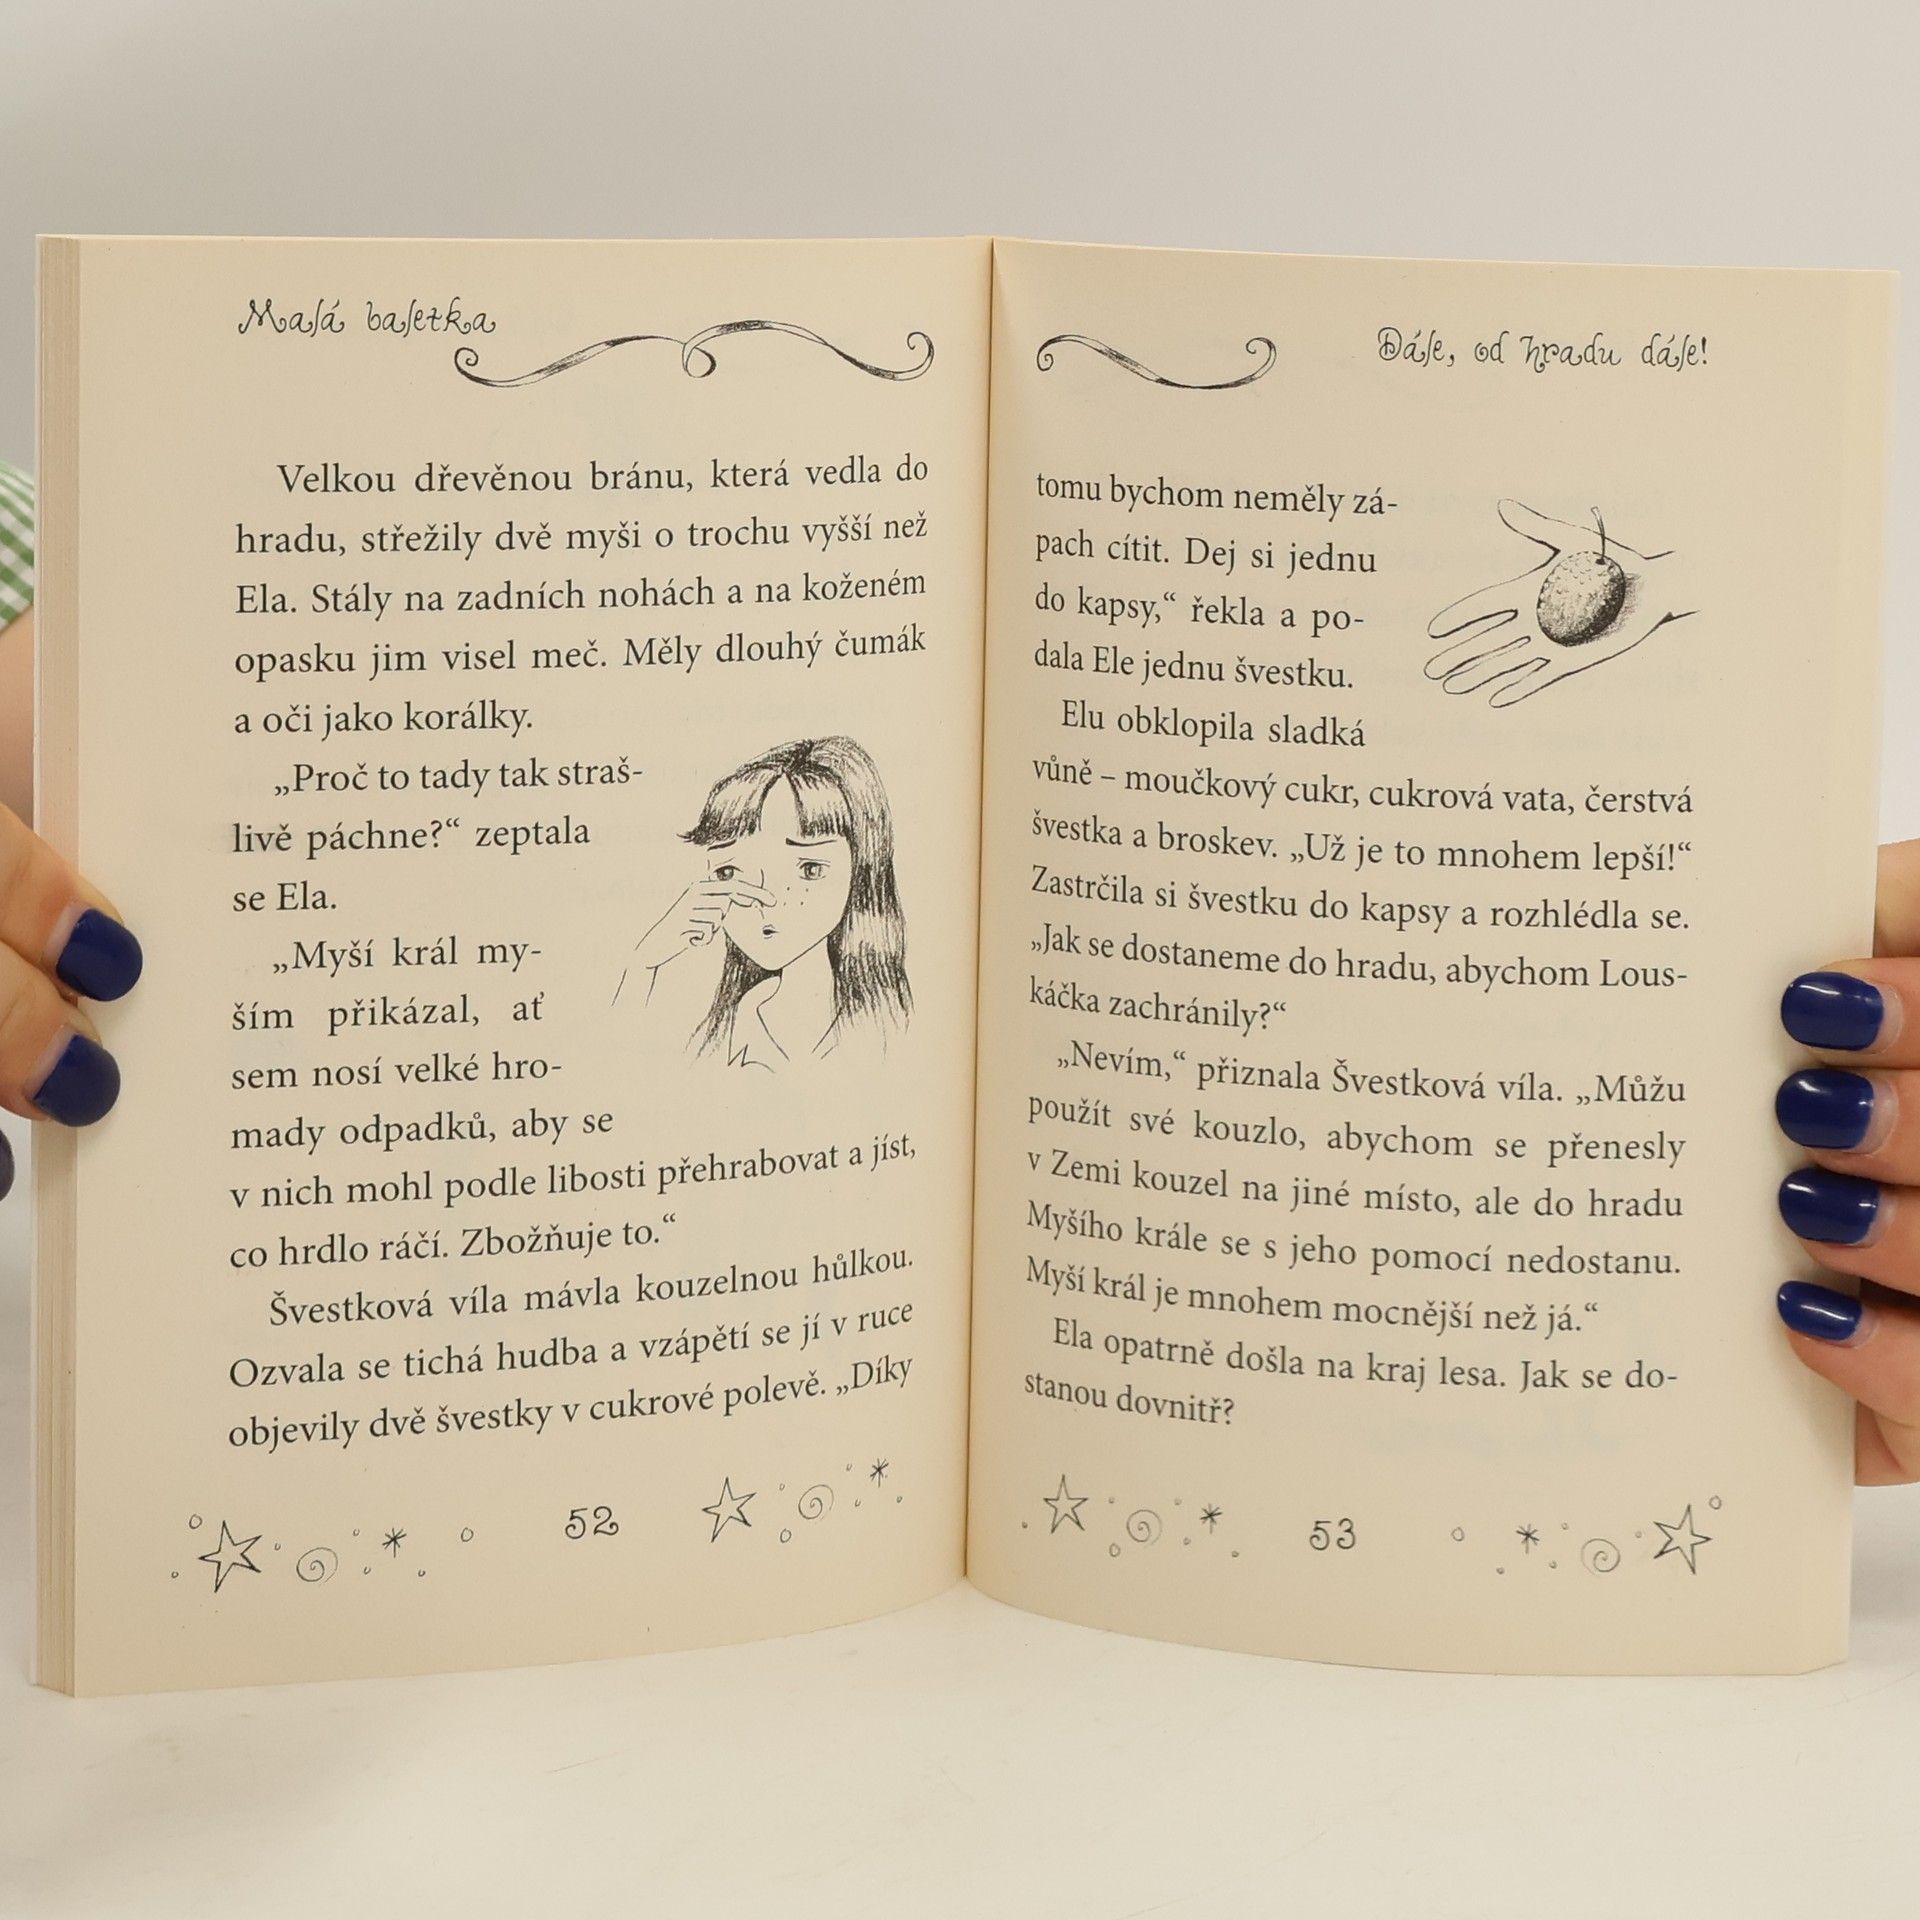 Malá baletka
Velkou dřevěnou bránu, která vedla do
hradu, střežily dvě myši o trochu vyšší než
Ela. Stály na zadních nohách a na koženém
opasku jim visel meč. Měly dlouhý čumák
a oči jako korálky.
„Proč to tady tak straš-
livě páchne?“ zeptala
se Ela.
„Myší král my-
ším přikázal, ať
sem nosí velké hro-
mady odpadků, aby se
v nich mohl podle libosti přehrabovat a jíst,
co hrdlo ráčí. Zbožňuje to.“
Švestková víla mávla kouzelnou hůlkou.
Ozvala se tichá hudba a vzápětí se jí v ruce
objevily dvě švestky v cukrové polevě. „Díky
52
Dále, od hradu dále!
tomu bychom neměly zá-
pach cítit. Dej si jednu
do kapsy,“ řekla a po-
dala Ele jednu švestku.
Elu obklopila sladká
vůně – moučkový cukr, cukrová vata, čerstvá
švestka a broskev. „Už je to mnohem lepší!“
Zastrčila si švestku do kapsy a rozhlédla se.
„Jak se dostaneme do hradu, abychom Lous-
káčka zachránily?“
„Nevím,“ přiznala Švestková víla. „Můžu
použít své kouzlo, abychom se přenesly
v Zemi kouzel na jiné místo, ale do hradu
Myšího krále se s jeho pomocí nedostanu.
Myší král je mnohem mocnější než já.“
Ela opatrně došla na kraj lesa. Jak se do-
stanou dovnitř?
53